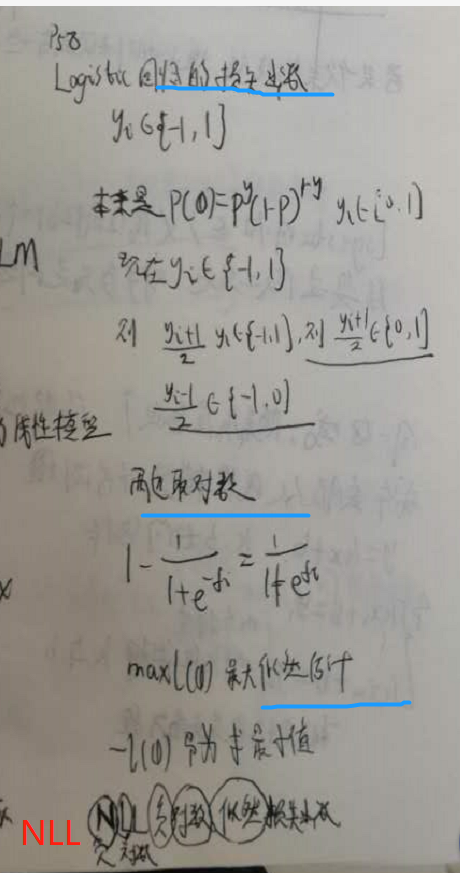 P58
Logistic 回归的损失函数
yi∈{-1,1}
本来是 P(0)=p^y(1-p)^1-y yi∈{0,1}
LM
现在 yi∈{-1,1}
则 yi+1/2 yi∈{-1,1}, 则 yi+1/2∈{0,1}
yi-1/2 ∈{-1,0}
性模型
两边取对数
1 - 1/1+e^-fi = 1/1+e^fi
x
maxl(θ) 最大似然估计
-l(θ) 为求最小值
NLL
NLL 负对数似然损失函数
负对数